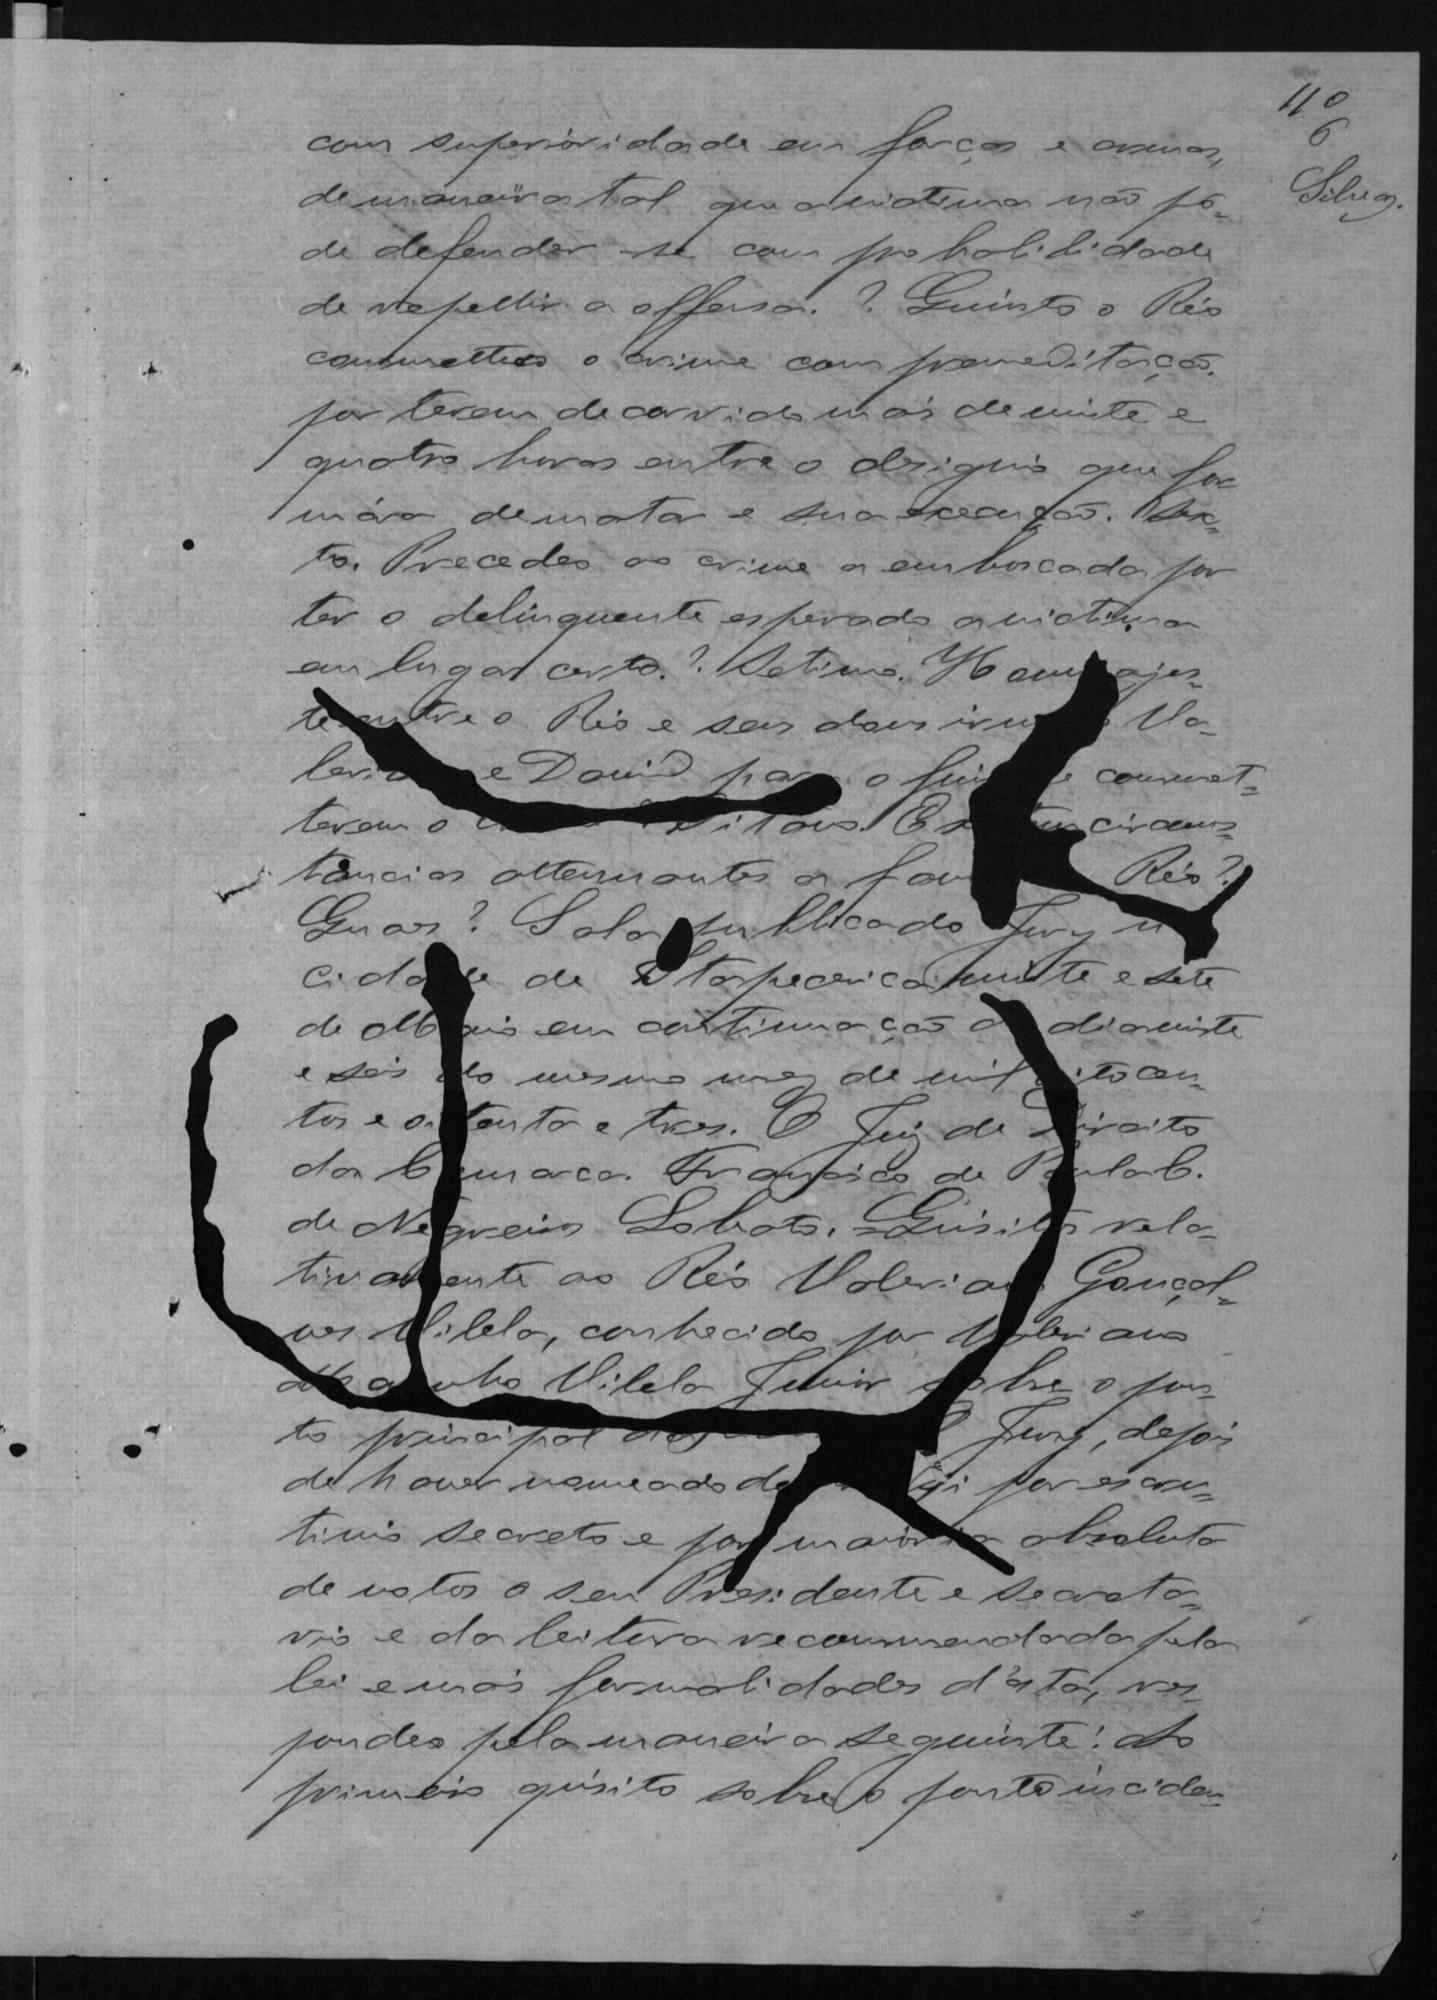 110
6
Silva.
com superioridade em forças e armas,
de maneira tal que a victima não po-
de defender-se com probalilidade
de repellir a offensa.? Quinto o Réo
commetteo o crime com premeditação.
por terem decorrido mais de vinte e
quatro horas entre o designio que for-
mára de matar e sua execução. Sex-
to. Precedeo ao crime a emboscada por
ter o delinquente esperado a victima
em lugar certo.? Setimo. Houve ajus-
te entre o Réo e seus dous irmãos Va-
leriano e David para o fim de commet-
terem o Oitavo. Existem circuns-
tancias attenuantes a favor Réo?
Quaes? Sala publica do Jury
cidade de Itapecerica vinte e sete
de Maio em continuação do dia vinte
e seis do mesmo mez de mil oitocen-
tos e oitenta e tres. O Juiz de Direito
da Comarca. Francisco de Paula C.
de Negreiros Lobato. = Quisitos rela-
tivamente ao Réo Valeriano Gonçal-
ves Vilela, conhecido por Valeriano
Vilela Junior sobre o pon-
to principal O Jury, depois
de haver nomeado d'entre si por escru-
tinio secreto e por maioria absoluta
de votos o seu Presidente e Secreta-
rio e da leitura recommendada pela
lei e mais formalidades d'esta, res-
pondeo pela maneira seguinte: Ao
primeiro quisito sobre o ponto inciden-